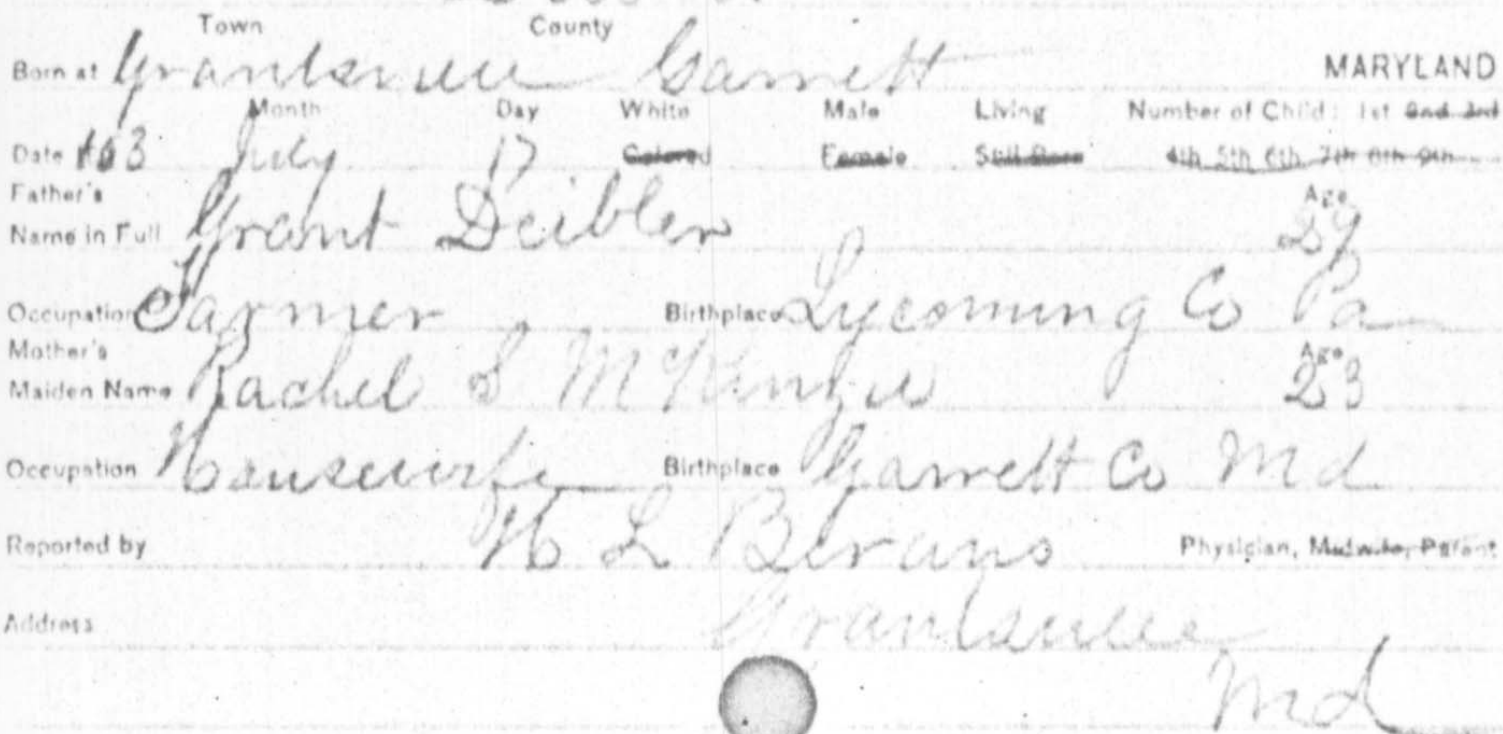 Town County
Born at Grantsville Garrett MARYLAND
Month Day White Male Living Number of Child: 1st 2nd 3rd
Date July 17 Colored Female Still Born 4th 5th 6th 7th 8th 9th
Father's Age
Name in Full Grant Deibler 29
Occupation Farmer Birthplace Lycoming Co Pa
Mother's Age
Maiden Name Rachel S McKenzie 23
Occupation Housewife Birthplace Garrett Co Md
Reported by Physician, Midwife, Parent
Address Grantsville
Md